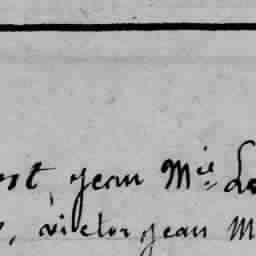 jean Mie
, victor jean M